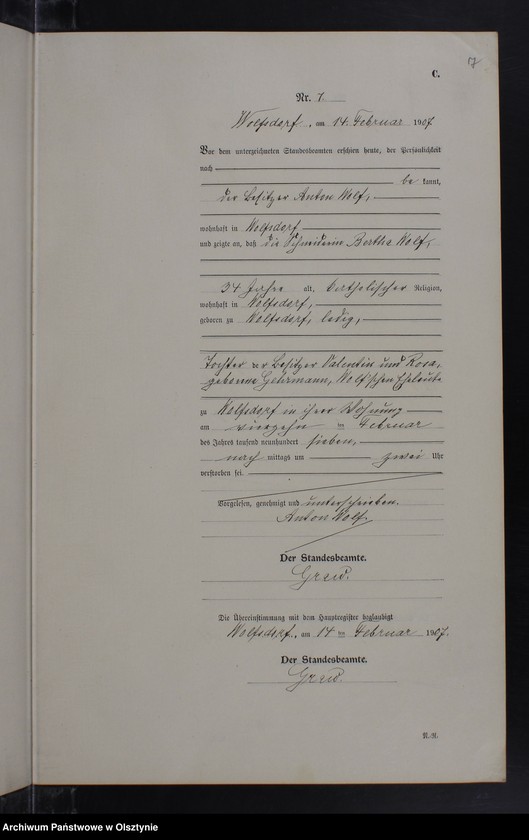 17
C.
Nr. 7.
Wolfsdorf, am 14. Februar 1907
Vor dem unterzeichneten Standesbeamten erschien heute, der Persönlichkeit
nach
be kannt,
der Besitzer Anton Wolf,
wohnhaft in Wolfsdorf
und zeigte an, daß die Schneiderin Bertha Wolf,
34 Jahre alt, katholischer Religion,
wohnhaft in Wolfsdorf,
geboren zu Wolfsdorf, ledig,
Tochter der Besitzer Valentin und Rosa,
geborene Gehrmann, Wolf'schen Eheleute
zu Wolfsdorf in ihrer Wohnung
am vierzehn ten Februar
des Jahres tausend neunhundert sieben,
nach mittags um zwei Uhr
verstorben sei.
Vorgelesen, genehmigt und unterschrieben.
Anton Wolf
Der Standesbeamte.
Grew.
Die Übereinstimmung mit dem Hauptregister beglaubigt
Wolfsdorf, am 14 ten Februar 1907.
Der Standesbeamte.
Grew.
Archiwum Państwowe w Olsztynie